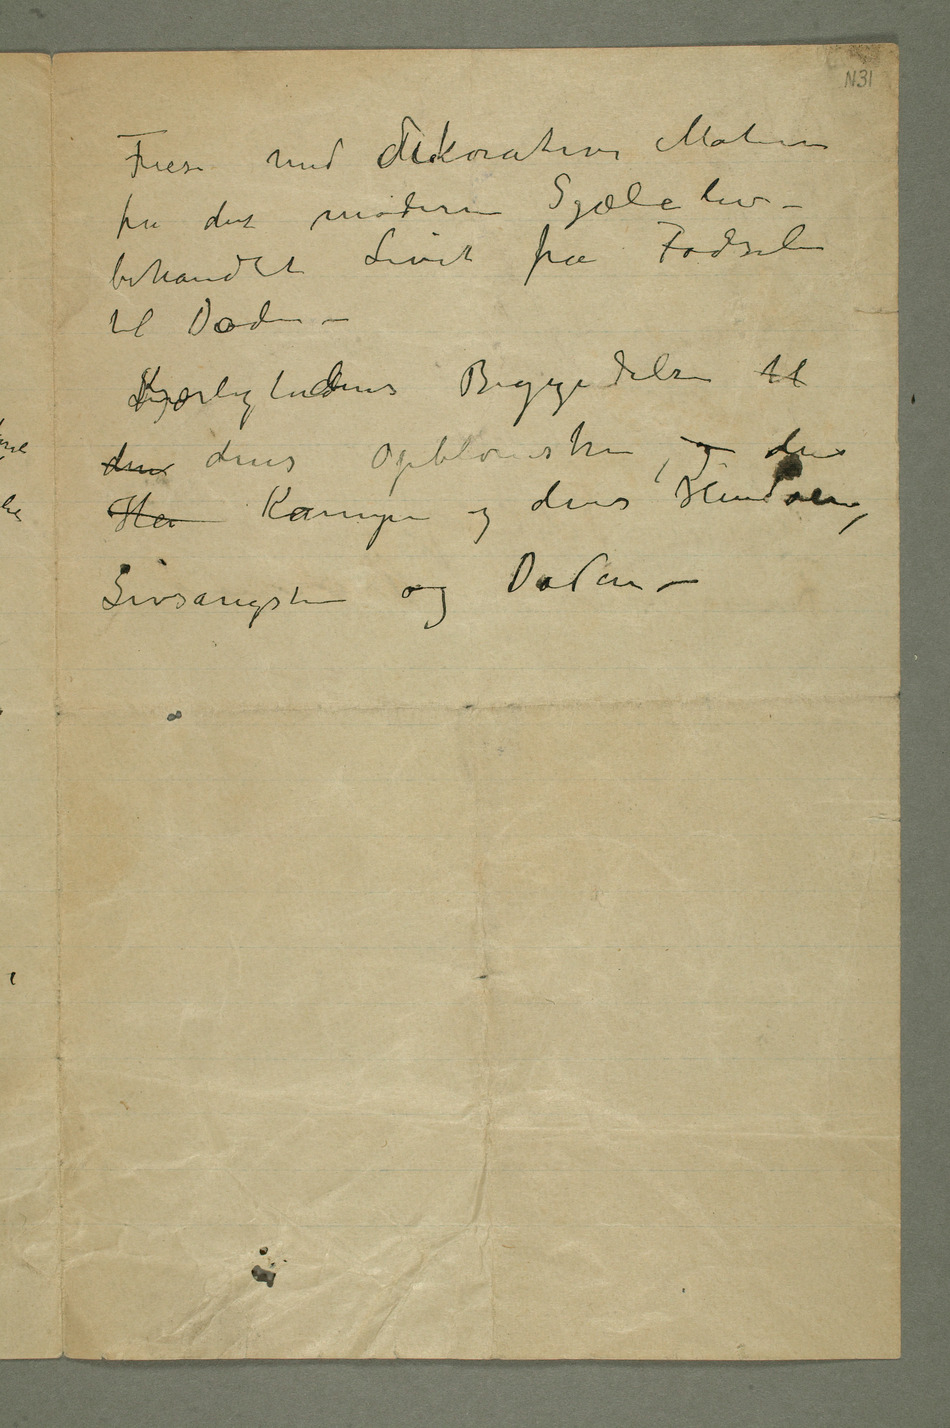 N31
Friese med dekorative Motiver
fra det moderne Sjæleliv –
behandlet Livet fra Fødselen
til Døden –
Kjærlighedens Begyndelse til
den dens Opblomstren, og dens
Hen Kampe og dens Hendøen,
Livsangsten og Døden –